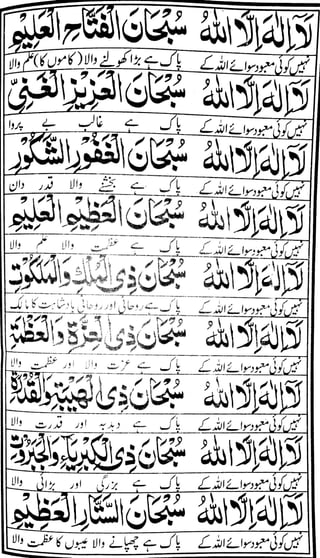 لَا اِلٰهَ اِلَّا اللهُ سُبْحَانَ الْفَتَّاحِ الْعَلِيْمِ
نہیں کوئی معبود سوائے اللہ کے پاک ہے بڑا کھولنے والا (کاموں کا) علم والا
لَا اِلٰهَ اِلَّا اللهُ سُبْحَانَ الْعَزِيْزِ الْغَنِيِّ
نہیں کوئی معبود سوائے اللہ کے پاک ہے غالب بے پروا
لَا اِلٰهَ اِلَّا اللهُ سُبْحَانَ الْغَفُوْرِ الشَّكُوْرِ
نہیں کوئی معبود سوائے اللہ کے پاک ہے بخشنے والا قدر دان
لَا اِلٰهَ اِلَّا اللهُ سُبْحَانَ الْعَظِيْمِ الْعَلِيْمِ
نہیں کوئی معبود سوائے اللہ کے پاک ہے عظمت والا علم والا
لَا اِلٰهَ اِلَّا اللهُ سُبْحَانَ ذِي الْمُلْكِ وَالْمَلَكُوْتِ
نہیں کوئی معبود سوائے اللہ کے پاک ہے روحانی اور روحانی بادشاہت کا مالک
لَا اِلٰهَ اِلَّا اللهُ سُبْحَانَ ذِي الْعِزَّةِ وَالْعَظَمَةِ
نہیں کوئی معبود سوائے اللہ کے پاک ہے عزت والا اور عظمت والا
لَا اِلٰهَ اِلَّا اللهُ سُبْحَانَ ذِي الْهَيْبَةِ وَالْقُدْرَةِ
نہیں کوئی معبود سوائے اللہ کے پاک ہے دبدبہ اور قدرت والا
لَا اِلٰهَ اِلَّا اللهُ سُبْحَانَ ذِي الْكِبْرِيَاءِ وَالْجَبَرُوْتِ
نہیں کوئی معبود سوائے اللہ کے پاک ہے بزرگی اور بڑائی والا
لَا اِلٰهَ اِلَّا اللهُ سُبْحَانَ السَّتَّارِ الْعَظِيْمِ
نہیں کوئی معبود سوائے اللہ کے پاک ہے چھپانے والا عیبوں کا عظمت والا